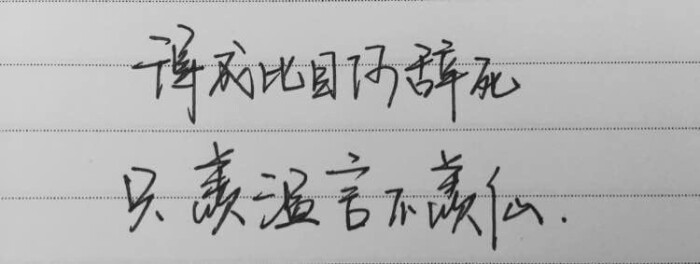 得成比目何辞死
只羡温言不羡仙.